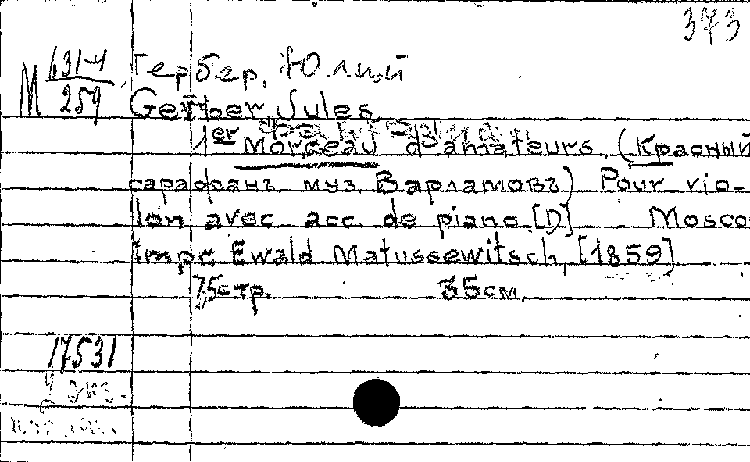 373
М 631-4 Гербер, Юлий
259 Gerber Jules.
1er Morceau d'amateurs. (Красный
сарафанъ муз. Варламовъ) Pour vio-
lon avec acc. de piano. [D] Mosco
impr Ewald Matussewitsch, [1859]
7,5 стр. 35 см.
17531
2 экз.